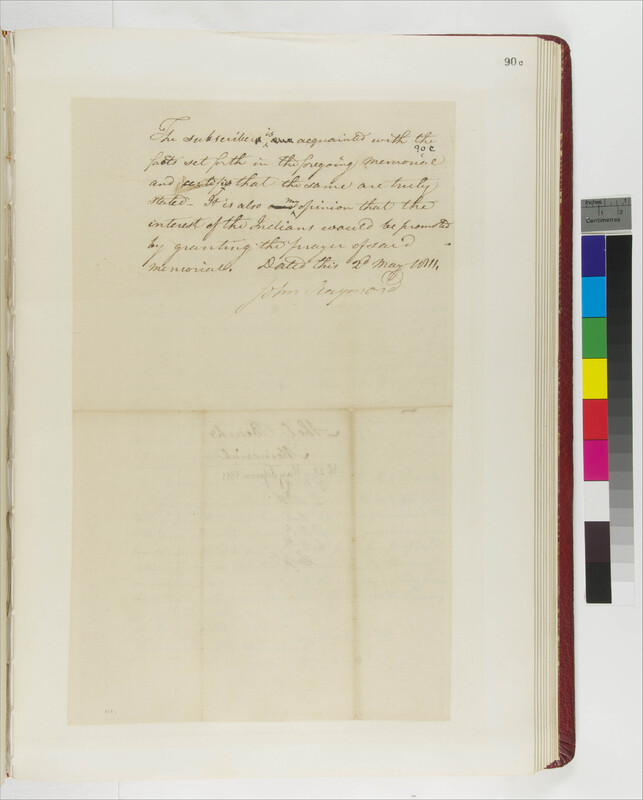 90c
The subscriber is acquainted with the
90c
facts set forth in the foregoing memorial
and certifys that the same are truly
stated - It is also my opinion that the
interest of the Indians would be promoted
by granting the prayer of said
memorial. Dated this 2d May 1811.
John Raymond
Inches
1
2
Centimetres